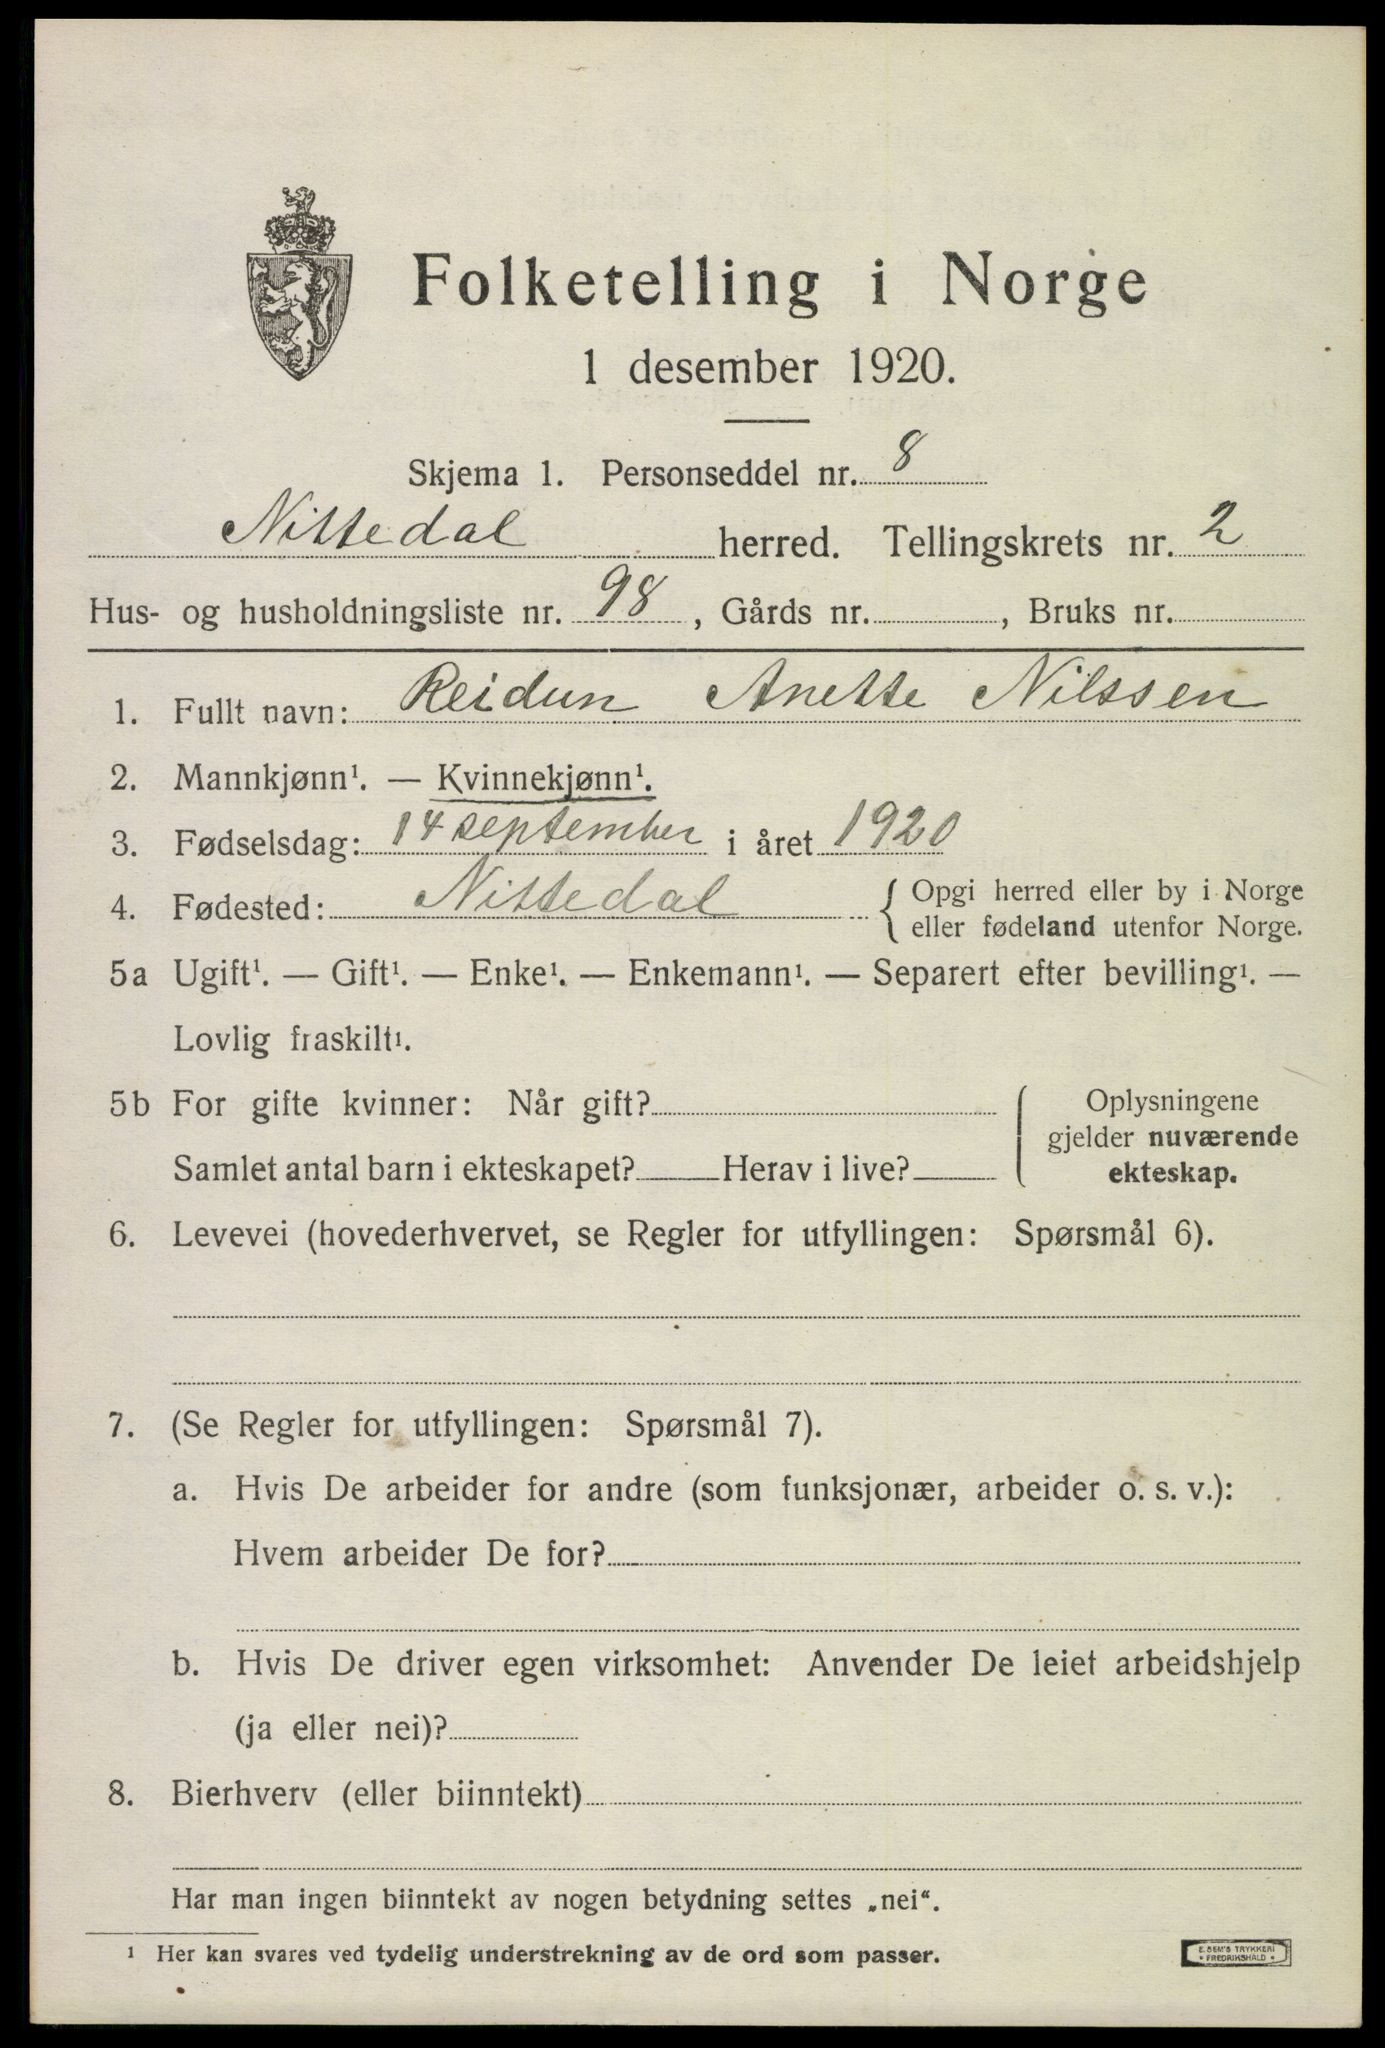 Folketelling i Norge
1 desember 1920.
Skjema 1. Personseddel nr. 8
Nittedal herred. Tellingskrets nr. 2
Hus- og husholdningsliste nr. 98, Gårds nr. , Bruks nr.
1. Fullt navn: Reidun Anette Nilssen
2. Mannkjønn¹. — Kvinnekjønn¹.
3. Fødselsdag: 14 september i året 1920
4. Fødested: Nittedal { Opgi herred eller by i Norge
eller fødeland utenfor Norge.
5a Ugift¹. — Gift¹. — Enke¹. — Enkemann¹. — Separert efter bevilling¹. —
Lovlig fraskilt¹.
5b For gifte kvinner: Når gift? ( Oplysningene
gjelder nuværende
Samlet antal barn i ekteskapet? Herav i live? ekteskap.
6. Levevei (hovederhvervet, se Regler for utfyllingen: Spørsmål 6).
7. (Se Regler for utfyllingen: Spørsmål 7).
a. Hvis De arbeider for andre (som funksjonær, arbeider o. s. v.):
Hvem arbeider De for?
b. Hvis De driver egen virksomhet: Anvender De leiet arbeidshjelp
(ja eller nei)?
8. Bierhverv (eller biinntekt)
Har man ingen biinntekt av nogen betydning settes „nei“.
¹ Her kan svares ved tydelig understrekning av de ord som passer.
E. SEM'S TRYKKERI
• FREDRIKSHALD •